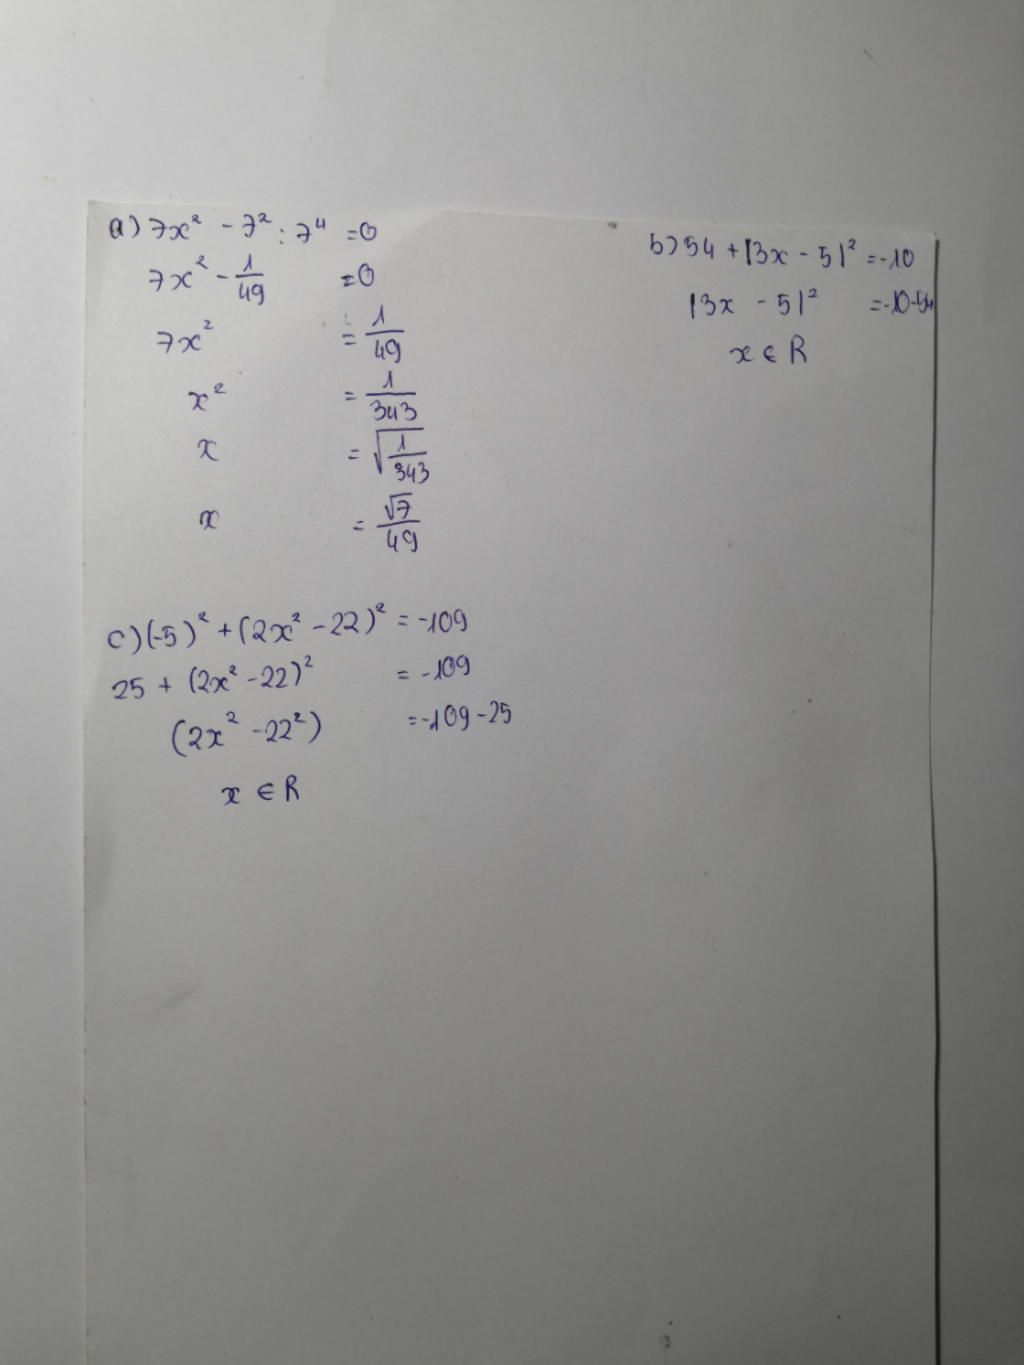 a) 7x² - 7² : 7⁴ = 0
7x² - 1/49 = 0
7x² = 1/49
x² = 1/343
x = √(1/343)
x = √7/49
b) 54 + |3x - 5|² = -10
|3x - 5|² = -10-54
x ∈ R
c) (-5)² + (2x² - 22)² = -109
25 + (2x² - 22)² = -109
(2x² - 22²) = -109 - 25
x ∈ R